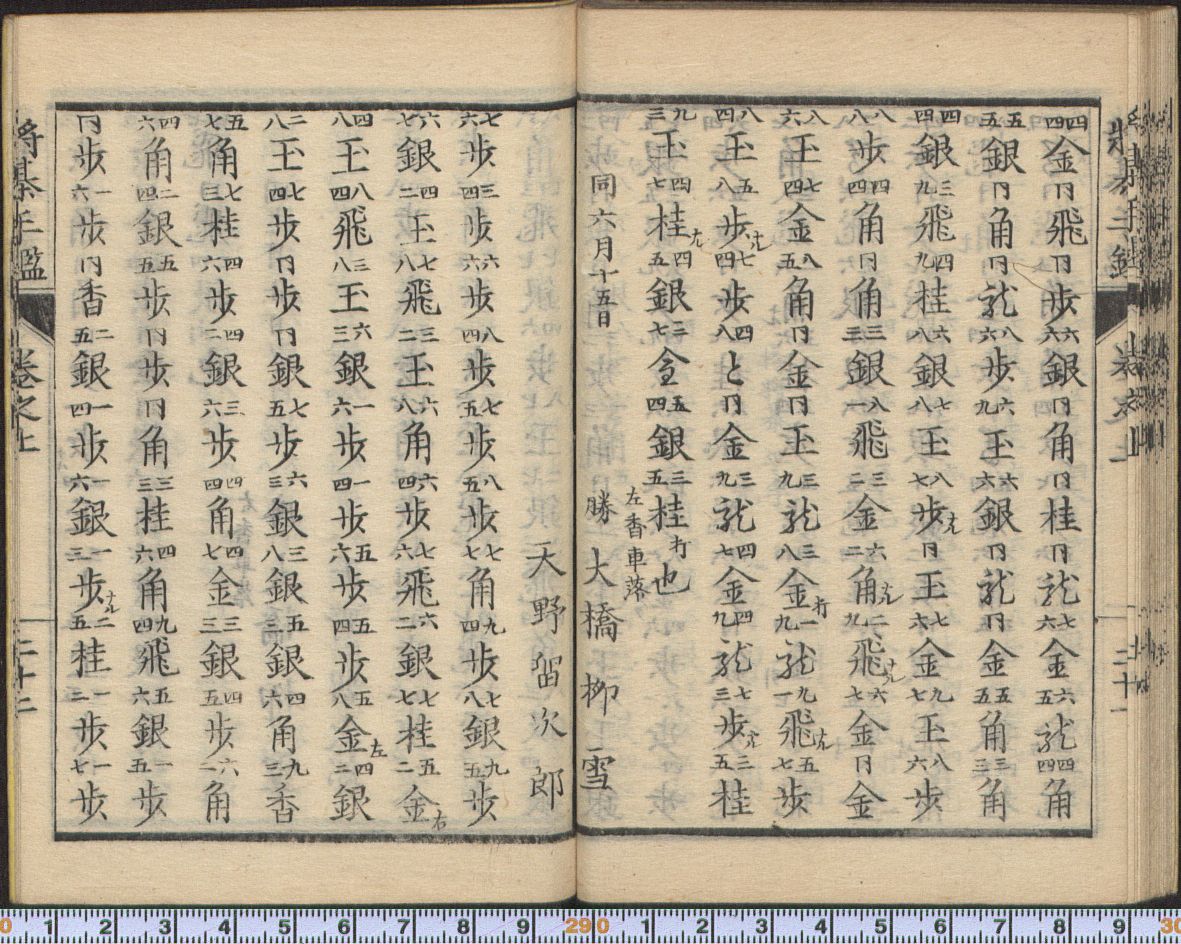 四四金同飛同歩六六銀同角同桂同龍七六金六五龍四四角
五五銀同角同龍八六歩六九玉六六銀同龍同金五五角三三角
四四銀三九飛四九桂六八銀七八玉八七歩ナル同玉七六金九七玉八六歩
八八歩四四角同角三三銀八一飛三二金六二角ナル二九飛ナル六七金同金
八六玉七四金八五角同金同玉三九龍三八金打一九龍九一飛ナル五七歩
八四玉五八歩ナル七四歩四八と同金三九龍四七金四九龍七三歩ナル二五桂
九三玉四七桂ナル四五銀二七金五四銀三五桂打也
左香車落
同六月十五日 勝 大橋柳雪
天野留次郎
七六歩三四歩六六歩八四歩七五歩八五歩七七角九四歩七八銀九五歩
六七銀四二玉七八飛三二玉六八角六四歩七六飛六二銀七七桂五二金右
四八玉八四飛三八玉六三銀一六歩一四歩五六歩五四歩五八金左四二銀
二八玉七四歩同歩同銀七五歩六三銀三八銀五銀四六角九三香
五七角七三桂四六歩四二銀三六歩四四角四七金三三銀四五歩六一角
四六角二四銀五五歩同歩同角三三桂四六角九四飛五六銀一五歩
同歩一六歩同香二五銀一四歩一六銀一三歩ナル二五桂一二歩一七歩
将棊手鑑 巻之上 二十二